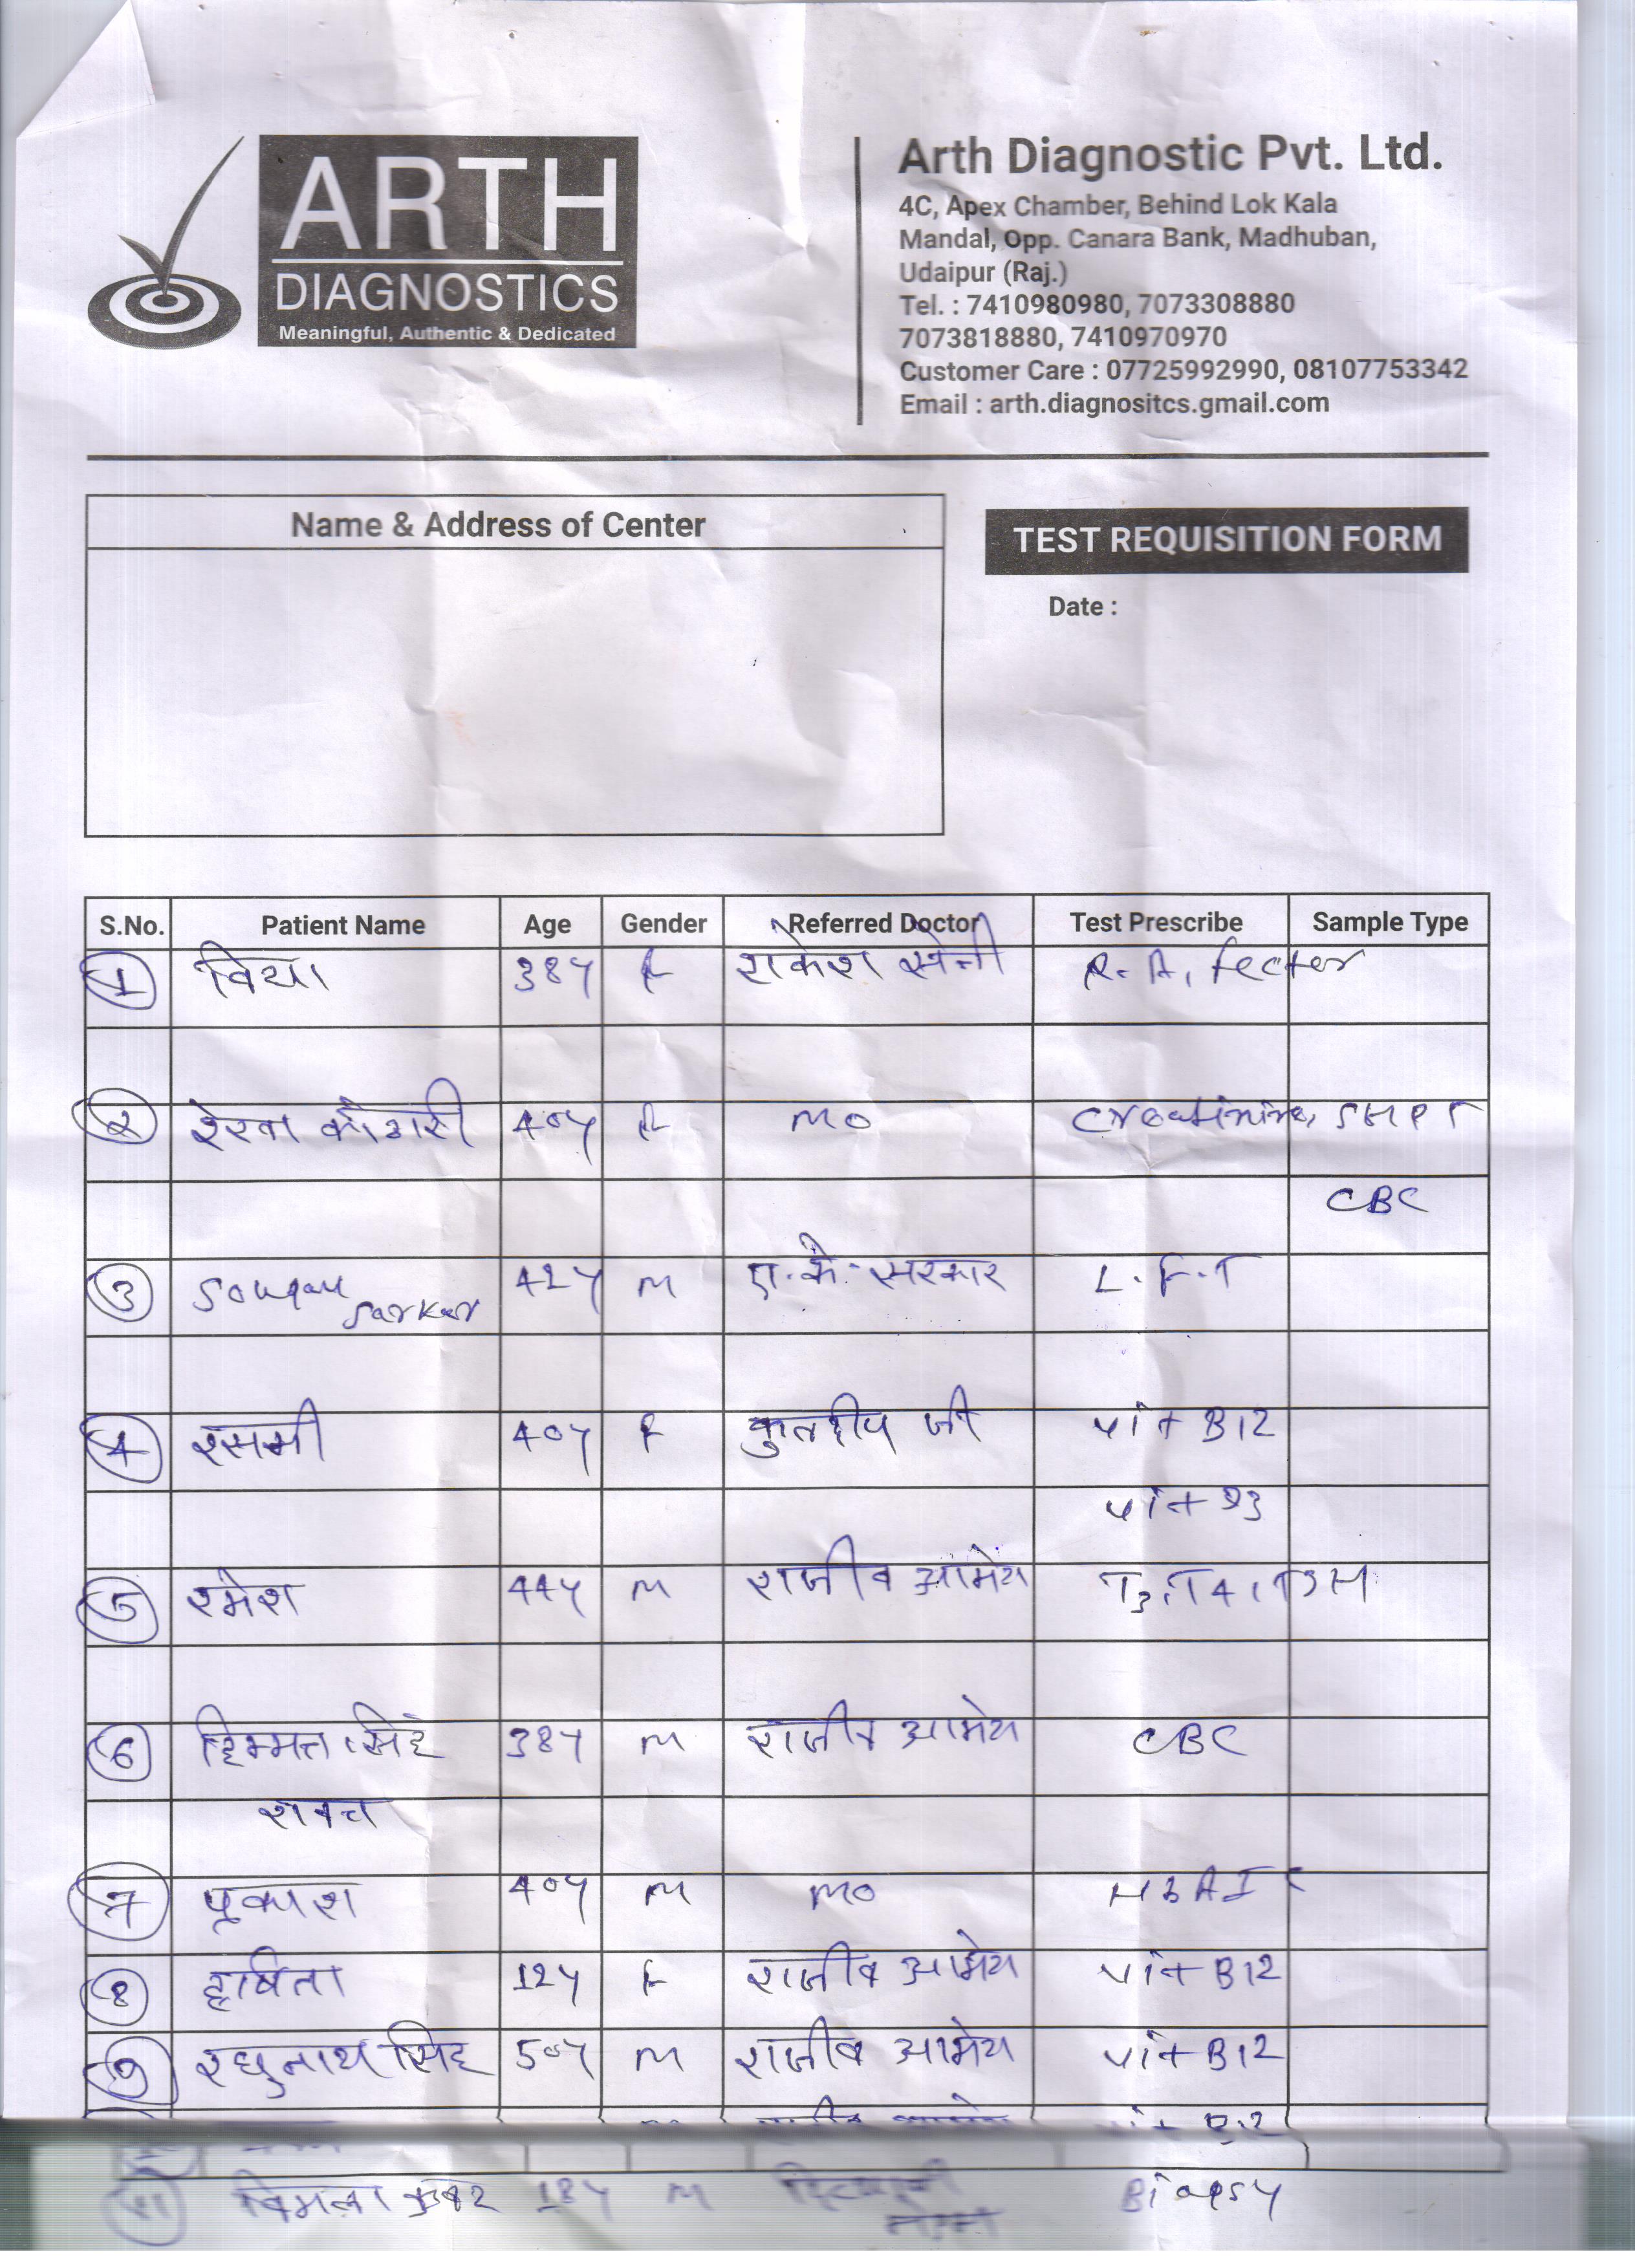 ARTH
DIAGNOSTICS
Meaningful, Authentic & Dedicated
Arth Diagnostic Pvt. Ltd.
4C, Apex Chamber, Behind Lok Kala
Mandal, Opp. Canara Bank, Madhuban,
Udaipur (Raj.)
Tel. : 7410980980, 7073308880
7073818880, 7410970970
Customer Care : 07725992990, 08107753342
Email : arth.diagnositcs.gmail.com
Name & Address of Center
TEST REQUISITION FORM
Date :
S.No. Patient Name Age Gender Referred Doctor Test Prescribe Sample Type
1 विद्या 38y F राकेश सेनी R.A, fector
2 रेखा कोठारी 40y F MO Creatinine, SHPT
CBC
3 Sarkar 42y M ए.के. सरकार L.F.T
4 रसमी 40y F कुलदीप जी Vit B12
Vit D3
5 रमेश 44y M राजीव आमेय T3, T4, TSH
6 हिम्मत सिंह 38y M राजीव आमेय CBC
7 प्रकाश 40y M MO HbA1C
8 हर्षिता 12y F राजीव आमेय Vit B12
9 रघुनाथ सिंह 50y M राजीव आमेय Vit B12
Vit B12
विमला कुंवर 18y M Biopsy